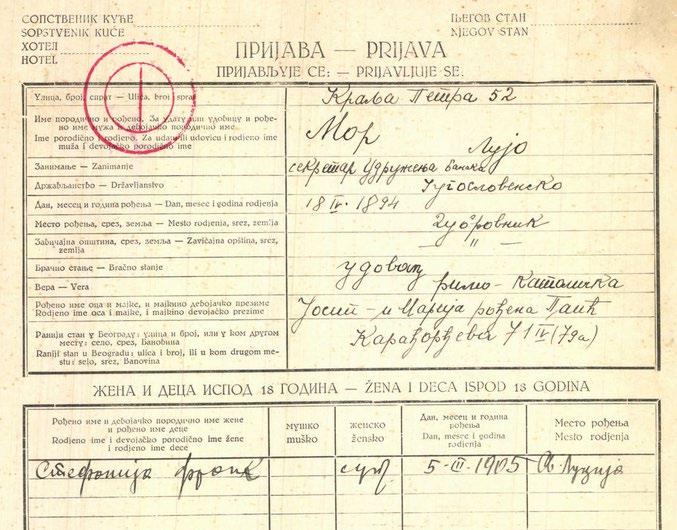 СОПСТВЕНИК КУЋЕ
SOPSTVENIK KUĆE
ХОТЕЛ
HOTEL
ЊЕГОВ СТАН
NJEGOV STAN
ПРИЈАВА — PRIJAVA
ПРИЈАВЉУЈЕ СЕ: — PRIJAVLJUJE SE.
Улица, број, спрат — Ulica, broj, sprat
Краља Петра 52
Име породично и рођено. За удату или удовицу и рође-
но име мужа и девојачко породично име
Ime porodično i rodjeno. Za udatu ili udovicu i rodjeno ime
muža i devojačko porodično ime
Мор Лујо
Занимање — Zanimanje
секретар Удружења банака
Држављанство — Državljanstvo
Југословенско
Дан, месец и година рођења — Dan, mesec i godina rodjenja
18 IV. 1894
Место рођења, срез, земља — Mesto rodjenja, srez, zemlja
Дубровник
Завичајна општина, срез, земља — Zavičajna opština, srez,
zemlja
— „ —
Брачно стање — Bračno stanje
удовац
Вера — Vera
римо-католичка
Рођено име оца и мајке, и мајкино девојачко презиме
Rodjeno ime oca i majke, i majkino devojačko prezime
Јосип - и Марија рођена
Ранији стан у Београду: улица и број, или у ком другом
месту: село, срез, Бановина
Raniji stan u Beogradu: ulica i broj, ili u kom drugom me-
stu: selo, srez, Banovina
Карађорђева 71 IV (79а)
ЖЕНА И ДЕЦА ИСПОД 18 ГОДИНА — ŽENA I DECA ISPOD 18 GODINA
Рођено име и девојачко породично име жене
и рођено име деце
Rodjeno ime i devojačko porodično ime žene
i rodjeno ime dece
мушко
muško
женско
žensko
Дан, месец и година
рођења
Dan, mesec i godina
rodjenja
Место рођења
Mesto rodjenja
Стефанија 5-III-1905 Св Луција